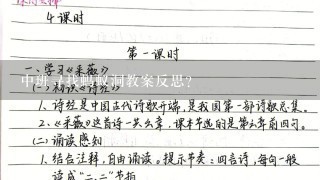 4课时
第一课时
一、学习《采薇》
中班寻找蚂蚁洞教案反思?
(一)初识《诗经》
1、诗经是中国古代诗歌开端,是我国第一部诗歌总集。
2、《采薇》这首诗一共六章,课本节选的是第六章前四句。
(二)诵读感知
1、结合注释,自由诵读。提示节奏:四言诗,每句一般
读成"二、二"节拍